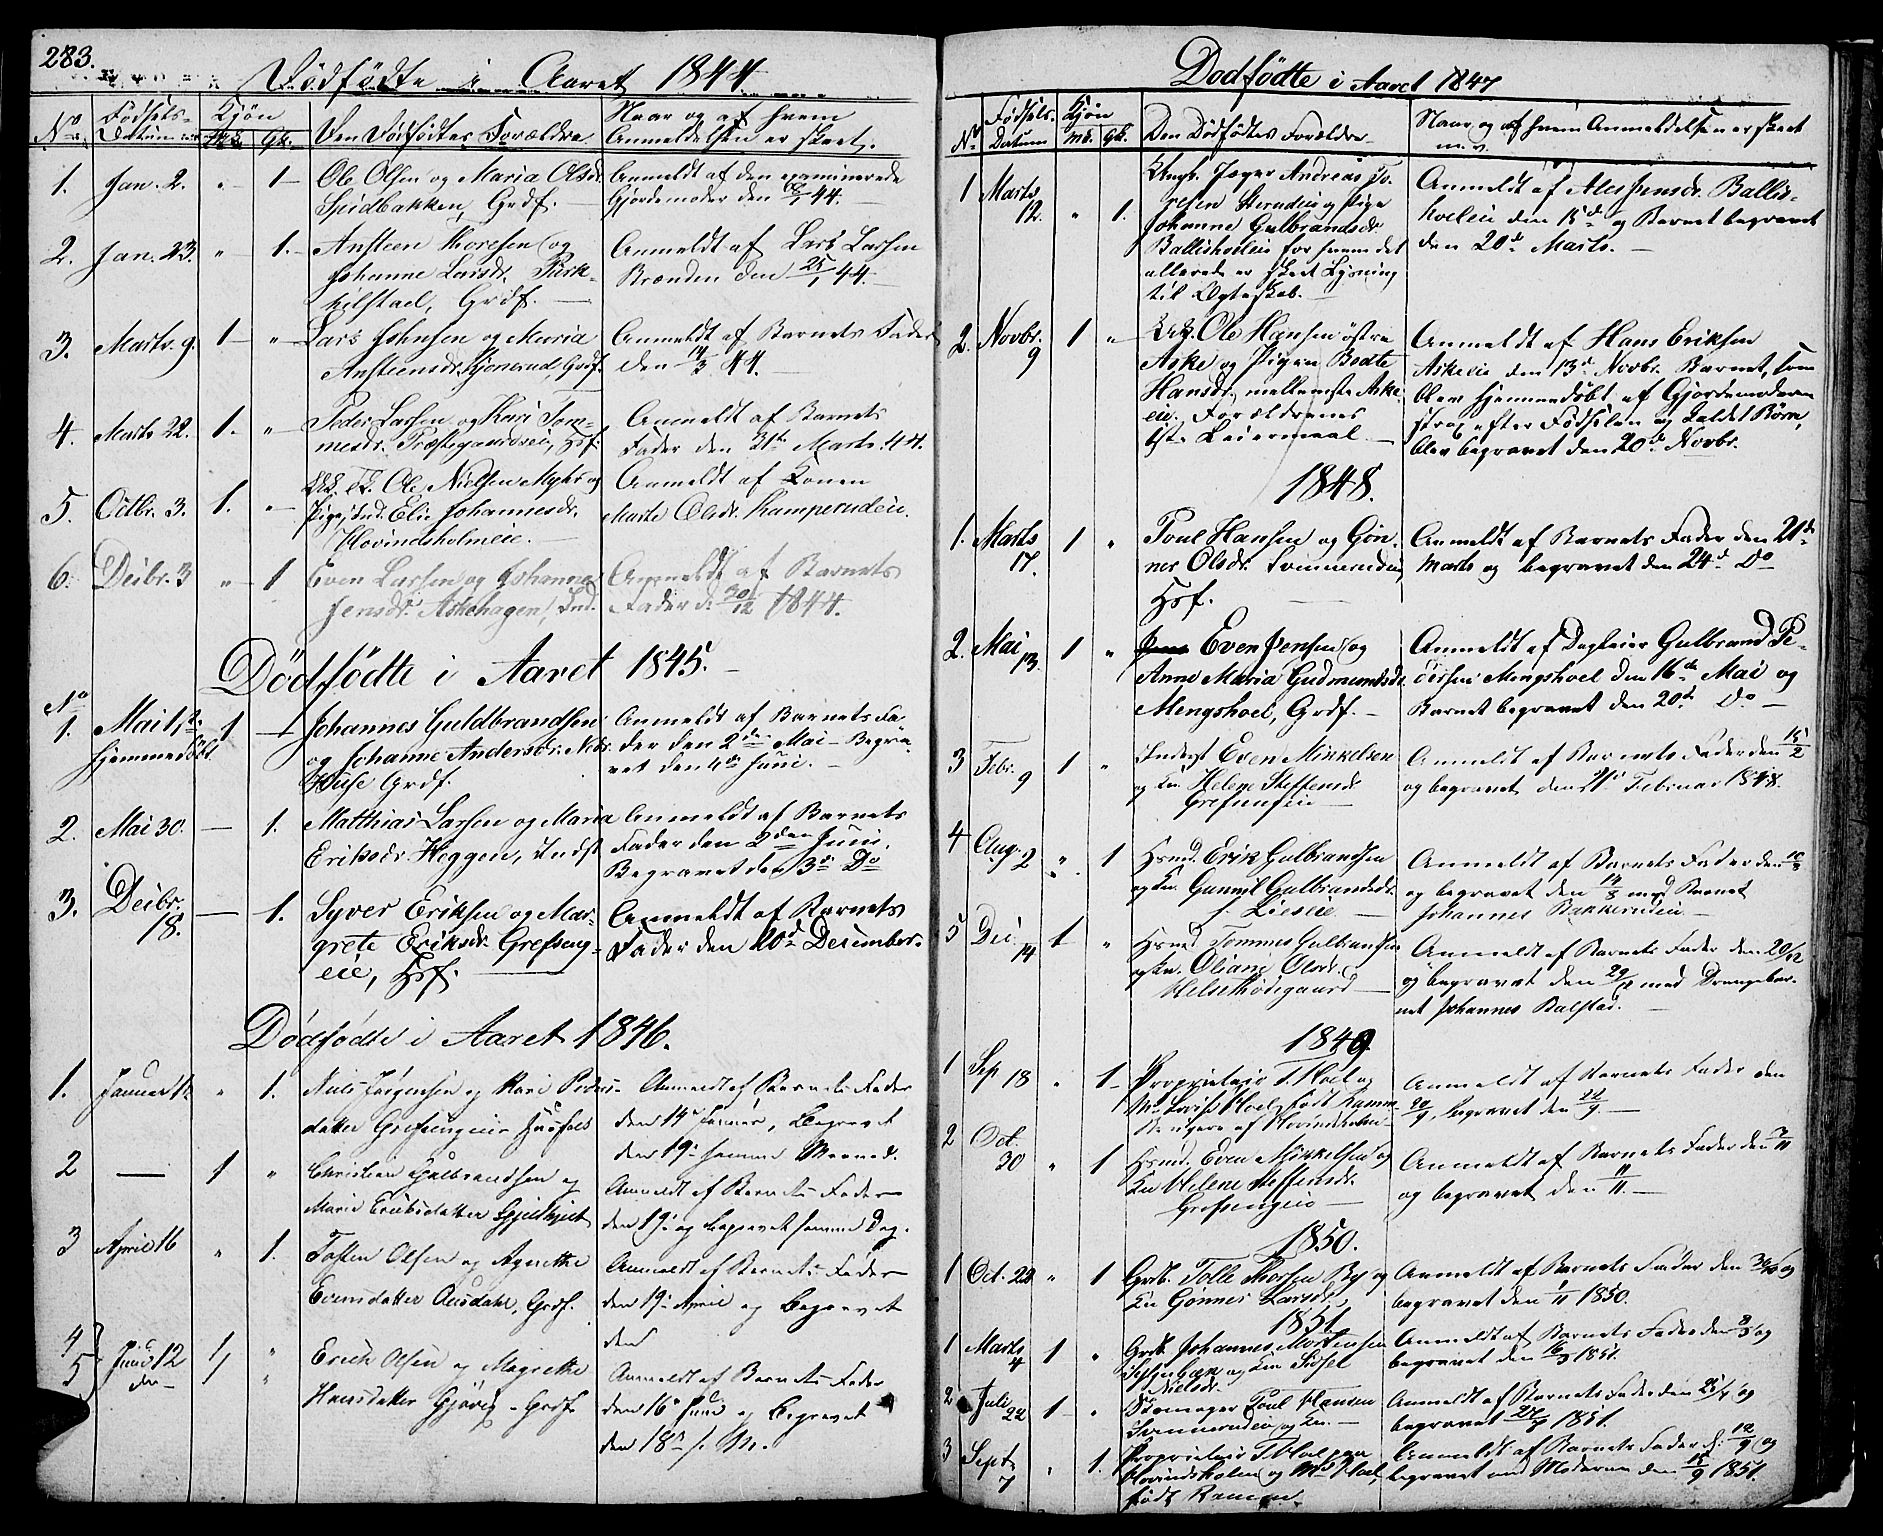 283.
Dödfödte i Aaret 1844
No
Födsels-
Datum
Kjön
Mk. Qk.
Den Dödfödtes Forældre
Naar og af hvem
Anmeldelsen er skeet.
1. Jan. 2. " 1 Ole Olsen og Maria Olsdr.
Grdf.
Anmeldt af den examinerede
Gjordemoder den 44.
2. Jan. 23. " 1. Ansteen Thoresen og
Johanne Larsdr.
Grdf.
Anmeldt af Lars Larsen
Brænden den 25/1 44.
3. Marts 9. 1 " Lars Johnsen og Maria
Ansteensdr. Kjonerud, Grdf.
Anmeldt af Barnets Fader
den 14/3 44.
4. Marts 22. 1. " Peder Larsen og Kari Tom-
mesdr. Præstegaardseie, Hsf.
Anmeldt af Barnets
Fader den 31te Marts 44.
5. Octbr. 3. 1. " Ole Nielsen Myhr og
Pige, Ind. Elie Johannesdr.
Hovindsholmeie.
Anmeldt af Konen
Marte Olsdr. Kamperudeie.
6. Decbr. 3 " 1 Even Larsen og Johanne
Jensdr. Askehagen, Ind.
Anmeldt af Barnets
Fader d. 30/12 1844.
Dödfödte i Aaret 1845.
No
1. Mai 1ste
hjemmedöbt
1 Johannes Guldbrandsen
og Johanne Andersdr. Nedr.
Huse Grdf.
Anmeldt af Barnets Fa-
der den 2den Mai - Begra-
vet den 4de Juni.
2. Mai 30. — 1. Matthias Larsen og Maria
Eriksdr. Heggen, Indst
Anmeldt af Barnets
Fader den 2den Juni.
Begravet den 3de Do
3. Decbr.
18. — 1. Syver Eriksen og Mar-
grete Eriksdr. Grefseng-
eie, Hsf.
Anmeldt af Barnets
Fader den 20de December.
Dödfödte i Aaret 1846.
1. Januar " 1. Niels Jörgensen og Kari Peders-
datter Grefsengeie Huusfolk
Anmeldt af Barnets Fader
den 14de Januar, Begravet
den 19de samme Maaned.
2 — 1 " Christian Gulbrandsen og
Marie Eriksdatter
Anmeldt af Barnets Fader
den 19de og begravet samme Dag.
3 April 16 " 1. Tosten Olsen og Agnethe
Evensdatter Ausdahl, Grdf.
Anmeldt af Barnets Fader
den 19de April og begravet
den
4
5 Juni 12
do
1/1 "
" Erich Olsen og Magrethe
Hansdatter Gjövig Grdf.
Anmeldt af Barnets Fader
den 16de Juni og begravet
den 18de s. M.
Dodfödte i Aaret 1847
No
Födsels-
Datum
Kjön
Mk. Qk.
Den Dödfödtes Forældre
Naar og af hvem Anmeldelsen er skeet
m. v.
1 Marts
12. " 1. Ungk. Jæger Andreas To-
resen og Pige
Johanne Gulbrandsdr.
Ballisholeie for hvem det
allerede er skeet Lysning
til Ægteskab.
Anmeldt af Ballis-
hoeleie den 15de og Barnet begravet
den 20de Marts.
2. Novbr.
9 1 " Ole Hansen östre
Aske og Pigen Bodte
Hansdr. mellemste Aske-
eie. Forældrenes
1ste Leiermaal.
Anmeldt af Hans Eriksen
Askeeie den 13de Novbr. Barnet, som
blev hjemmedøbt af Gjordemoderen
strax efter Födselen og kaldet Börre,
blev begravet den 20de Novbr.
1848.
1. Marts
17. 1 " Poul Hansen og Gön-
ner Olsdr.
Hsf.
Anmeldt af Barnets Fader den 21de
Marts og begravet den 24de Do
2. Mai
13. 1 " Even Jensen og
Anne Maria Gudmundsdr.
Mengshoel, Grdf.
Anmeldt af Dagleier Gulbrand Pe-
dersen Mengshoel den 16de Mai og
Barnet begravet den 20de Do
3 Febr.
9 1 " Inderst Even Mikkelsen
og Kn. Helene Steffensdr.
Grefsengeie
Anmeldt af Barnets Fader den 15/2
og begravet den 21de Februar 1848.
4 Aug.
2 " 1 Hsmd. Erik Gulbrandsen
og Kn. Gunnil Gulbrandsdr.
Lieseie
Anmeldt af Barnets Fader den
og begravet den med Barnet
Johannes Bakkerudeie
5 Dec.
14 1 " Hsmd Tommes Gulbrandsen
og Kn. Oliane Olsdr.
Helsethödegaard
Anmeldt af Barnets Fader den 20/12
og begravet den med Drengebar-
net Johannes Balstad.
1849
1 Sep 18 " 1 Proprietair T. Hoel og
Md. Lovise Hoel, født Kamm-
af Hovindsholm
Anmeldt af Barnets Fader den
20/9, begravet den 22/9
2 Oct.
30 " 1 Hsmd. Even Mikkelsen og
Kn Helene Steffensdr.
Grefsengeie
Anmeldt af Barnets Fader den 7/11
og begravet den 11/11.
1850.
1 Oct. 28 " 1 Grdb. Tolle Thorsen By og
Kn Gönner Larsdr.
Anmeldt af Barnets Fader den 30/10 og
begravet den 1/11 1850.
1851.
1 Marts
4 1 " Grdb. Johannes Mortensen
og Kn Sidsel
Nielsdr.
Anmeldt af Barnets Fader den 8/3 og
begravet den 16/3 1851.
2 Juli
22 1 " Skomager Poul Hansen
og Kn.
Anmeldt af Barnets Fader den og
begravet 27/7 1851.
3 Sept
7 " 1. Proprietair T. Hoel paa
Hovindsholm og Md. Hoel,
født Kamm
Anmeldt af Barnets Fader d. 12/9 og
begravet med Moderen den 15/9 1851.